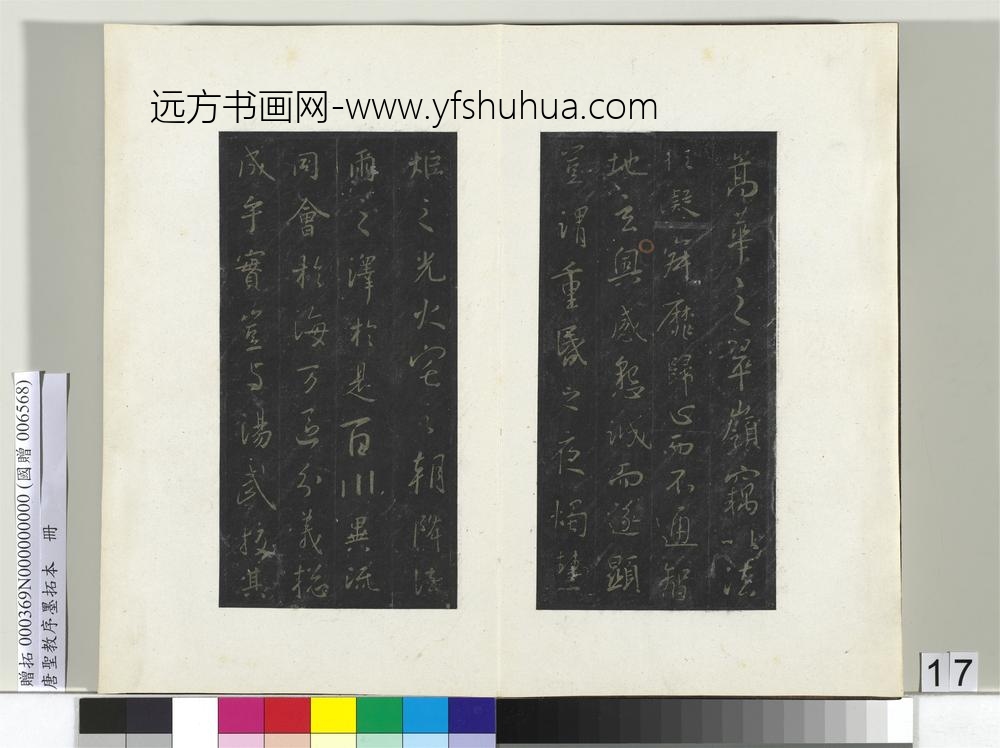 远方书画网-www.yfshuhua.com
嵩華之翠嶺竊以法
性凝寂靡歸心而不通智
地玄奧感懇誠而遂顯
豈謂重昏之夜燭慧
炬之光火宅之朝降法
雨之澤於是百川異流
同會於海万區分義總
成乎實豈与湯武挍其
贈拓 000369N000000000 (國贈 006568)
唐聖教序墨拓本 冊
17